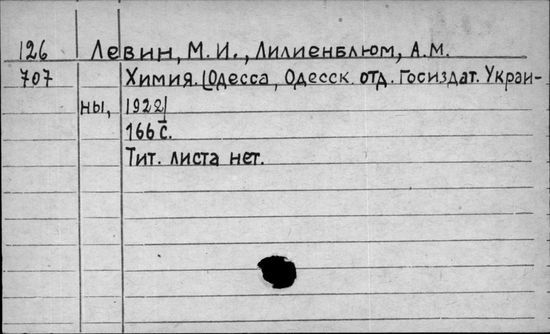 126 Левин, М. И., Лилиенблюм, А. М.
707 Химия. [Одесса, Одесск. отд. Госиздат. Украи-
ны, 1922]
166 с.
Тит. листа нет.